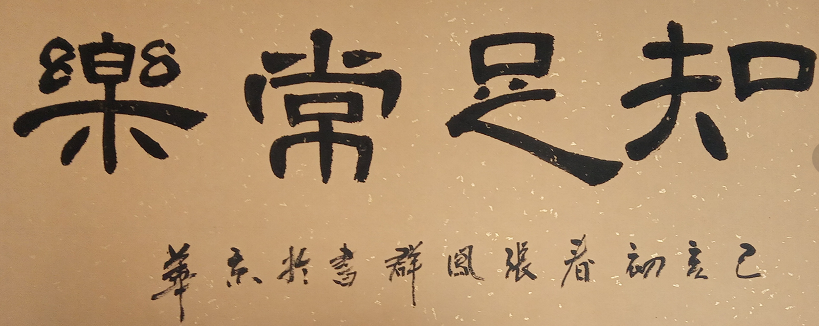 知足常樂
己亥初春張鳳群書於京華